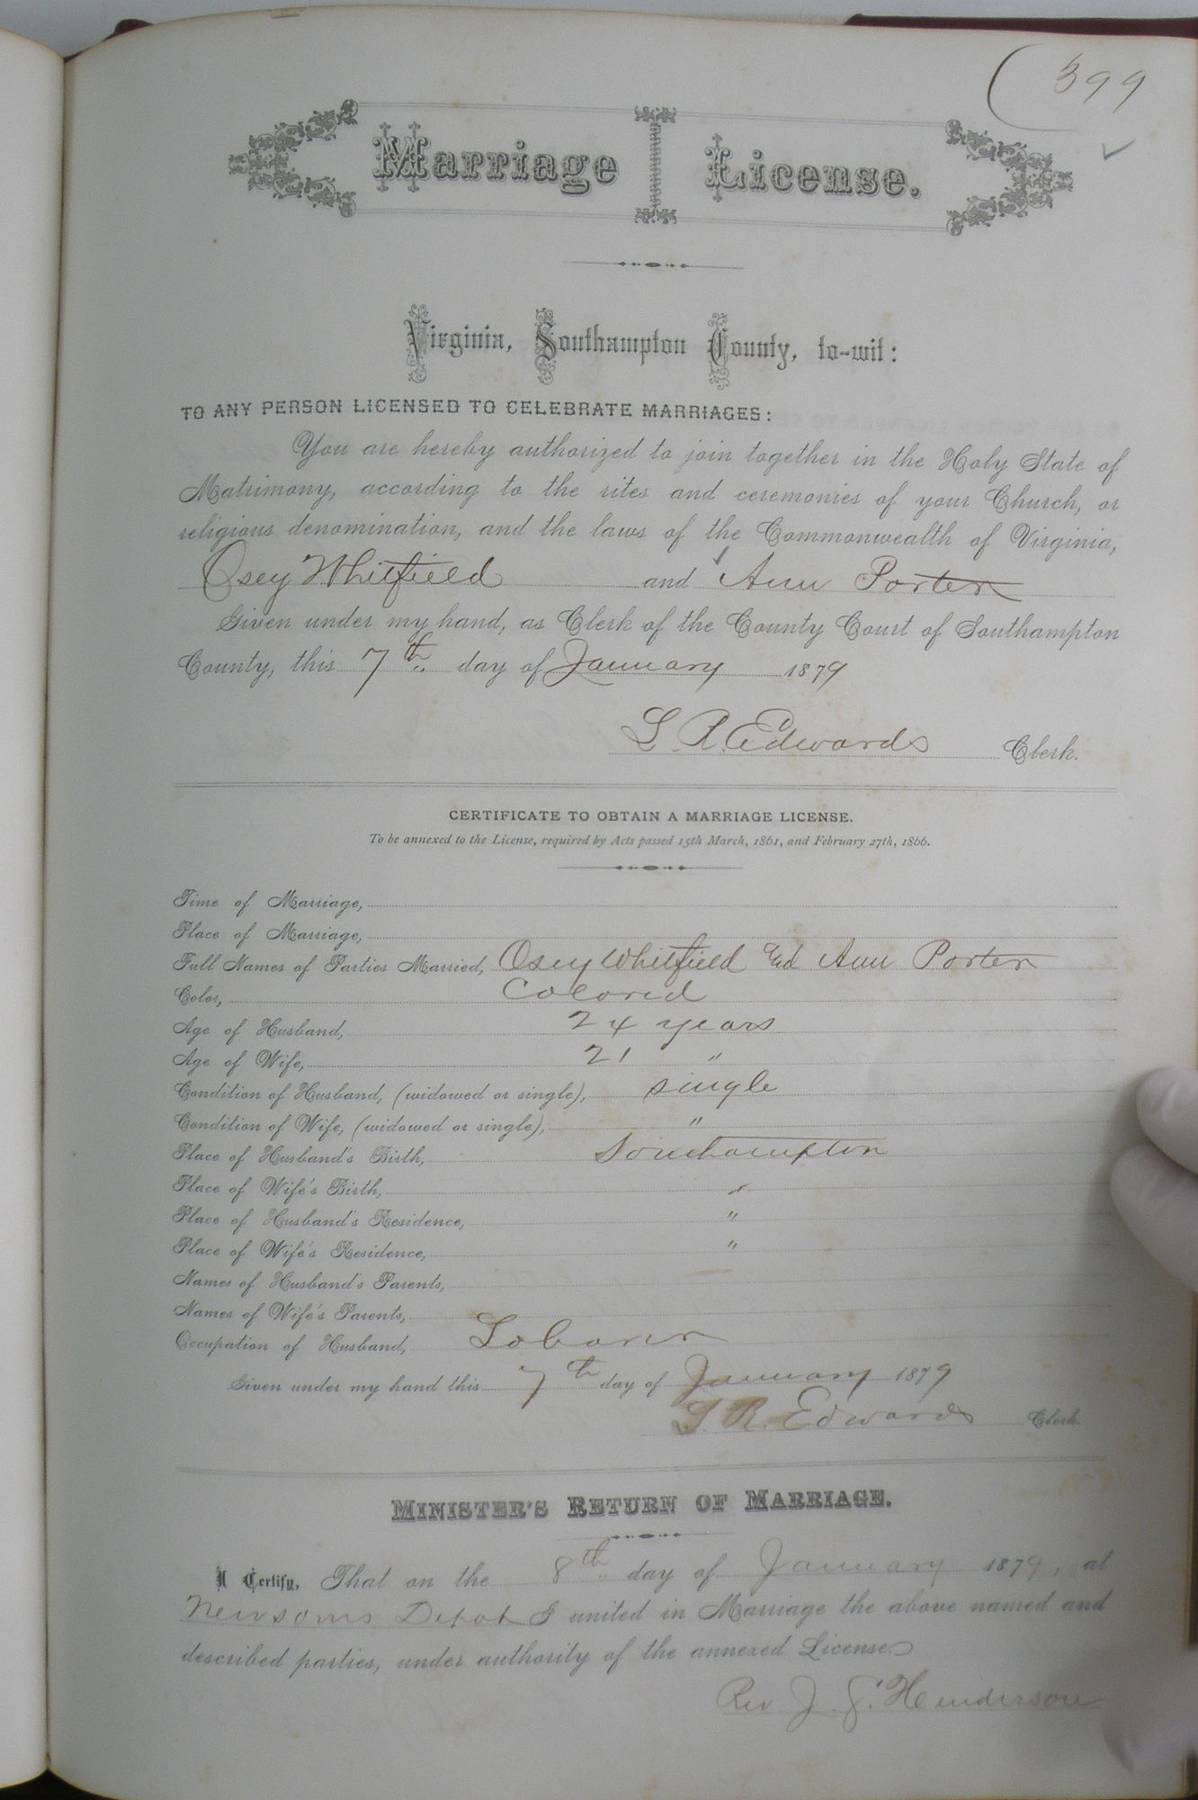 399
Marriage License.
Virginia, Southampton County, to-wit:
TO ANY PERSON LICENSED TO CELEBRATE MARRIAGES:
You are hereby authorized to join together in the Holy State of
Matrimony, according to the rites and ceremonies of your Church, or
religious denomination, and the laws of the Commonwealth of Virginia,
Osey Whitfield and Ann Porter
Given under my hand, as Clerk of the County Court of Southampton
County, this 7th day of January 1879
L. R. Edwards Clerk.
CERTIFICATE TO OBTAIN A MARRIAGE LICENSE.
To be annexed to the License, required by Acts passed 15th March, 1861, and February 27th, 1866.
Time of Marriage,
Place of Marriage,
Full Names of Parties Married, Osey Whitfield And Ann Porter
Color, Colored
Age of Husband, 24 years
Age of Wife, 21 "
Condition of Husband, (widowed or single), single
Condition of Wife, (widowed or single), "
Place of Husband's Birth, Southampton
Place of Wife's Birth, "
Place of Husband's Residence, "
Place of Wife's Residence, "
Names of Husband's Parents,
Names of Wife's Parents,
Occupation of Husband, Laborer
Given under my hand this 7th day of January 1879
L. R. Edwards Clerk
MINISTER'S RETURN OF MARRIAGE.
I Certify, That on the 8th day of January 1879, at
Newsoms Depot I united in Marriage the above named and
described parties, under authority of the annexed License
Rev J. G. Henderson